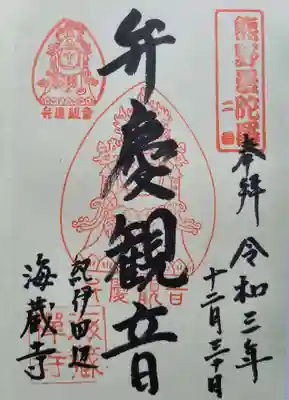 熊野曼陀羅
二番
奉拝
令和三年
十二月三十日
弁慶観音
紀伊田辺
海蔵寺